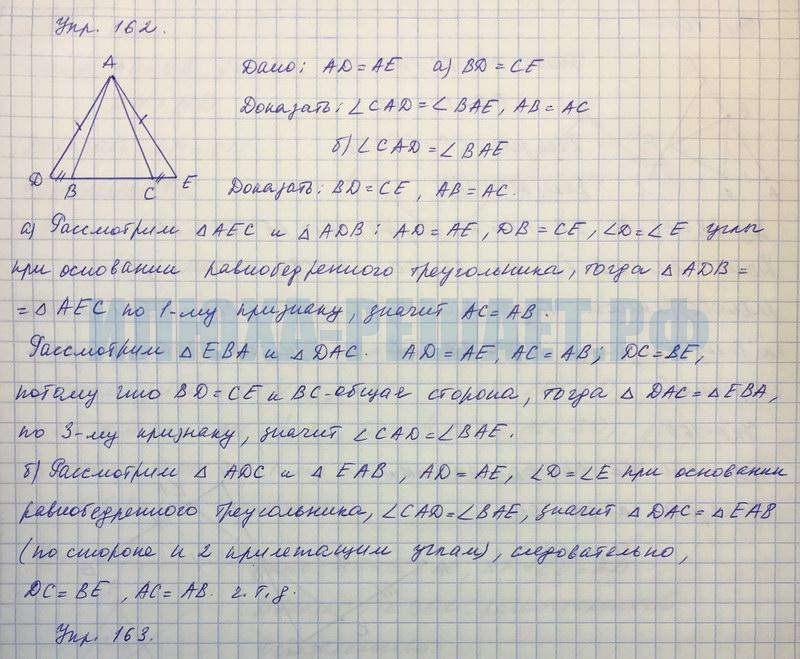 Упр. 162.
A
D B C E
Дано: AD = AE а) BD = CE
Доказать: ∠CAD = ∠BAE, AB = AC
б) ∠CAD = ∠BAE
Доказать: BD = CE, AB = AC.
а) Рассмотрим △AEC и △ADB: AD = AE, DB = CE, ∠D = ∠E углы
при основании равнобедренного треугольника, тогда △ADB =
= △AEC по 1-му признаку, значит AC = AB.
Рассмотрим △EBA и △DAC. AD = AE, AC = AB; DC = BE,
потому что BD = CE и BC - общая сторона, тогда △DAC = △EBA,
по 3-му признаку, значит ∠CAD = ∠BAE.
б) Рассмотрим △ADC и △EAB, AD = AE, ∠D = ∠E при основании
равнобедренного треугольника, ∠CAD = ∠BAE, значит △DAC = △EAB
(по стороне и 2 прилетащим углам), следовательно,
DC = BE, AC = AB. ч.т.д.
Упр. 163.